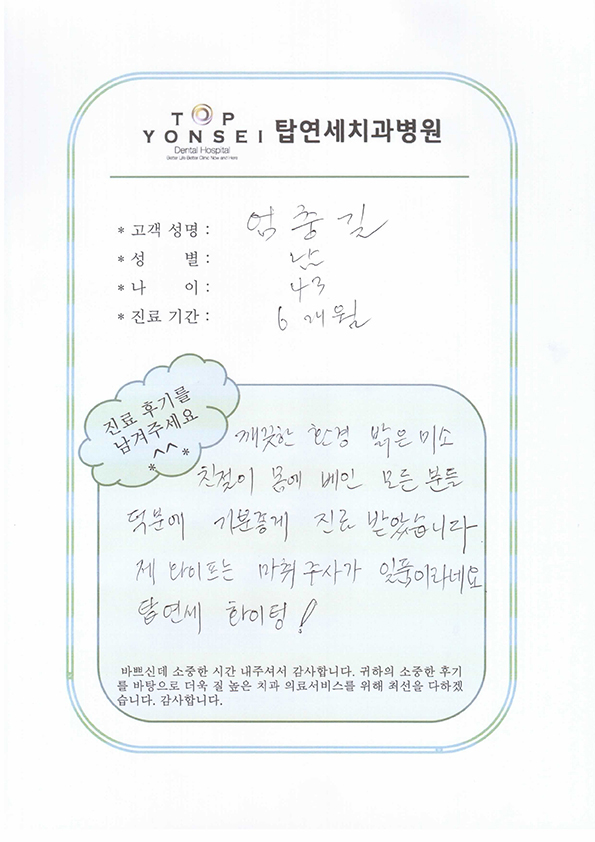 TOP
YONSEI 탑연세치과병원
Dental Hospital
Better Life Better Clinic Now and Here
* 고객 성명 : 엄중길
* 성 별 : 남
* 나 이 : 43
* 진료 기간 : 6개월
진료 후기를
남겨주세요
*^^*
깨끗한 환경 밝은 미소
친절이 몸에 베인 모든 분들
덕분에 기분좋게 진료 받았습니다
제 와이프는 마취주사가 일품이라네요
탑연세 화이팅!
바쁘신데 소중한 시간 내주셔서 감사합니다. 귀하의 소중한 후기
를 바탕으로 더욱 질 높은 치과 의료서비스를 위해 최선을 다하겠
습니다. 감사합니다.